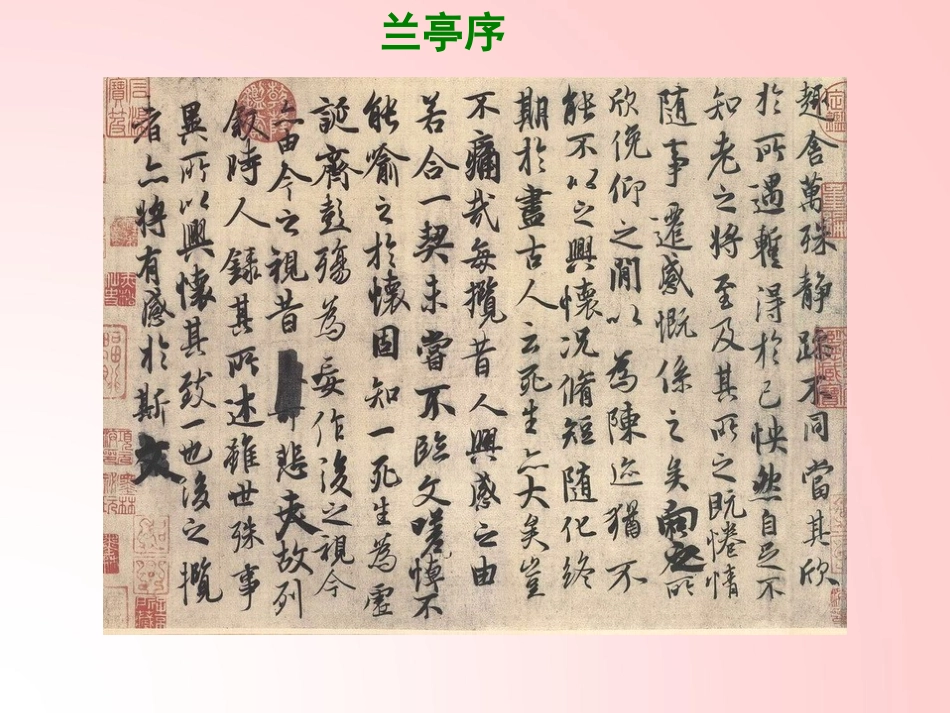 兰亭序
趣舍萬殊静躁不同當其欣
於所遇蹔得於己怏然自足不
知老之將至及其所之既惓情
随事遷感慨係之矣向之所
欣俛仰之閒以為陳迹猶不
能不以之興懷況脩短随化終
期於盡古人云死生亦大矣豈
不痛哉每攬昔人興感之由
若合一契未嘗不臨文嗟悼不
能喻之於懷固知一死生為虛
誕齊彭殤為妄作後之視今
亦由今之視昔悲夫故列
敘時人錄其所述雖世殊事
異所以興懷其致一也後之攬
者亦將有感於斯文